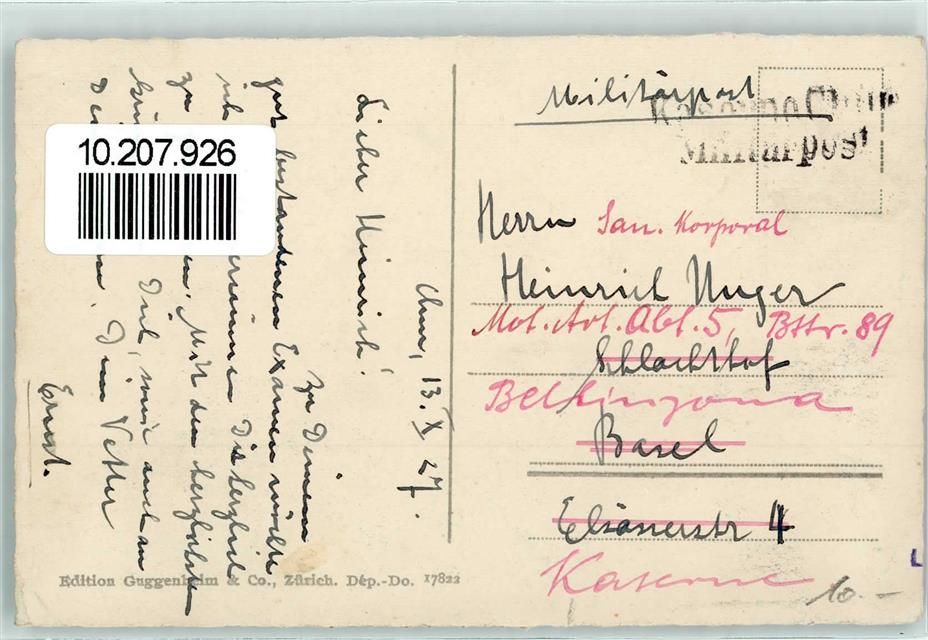 10.207.926
Chur, 13. X 27.
Lieber Heinrich!
Zu Deinem
gut bestandenen Examen möchte
ich
Dir herzlich
zu
Mit den herzlichsten
Dich, sowie auch an
Dein Vetter
Ernst.
Edition Guggenheim & Co., Zürich. Dép.-Do. 17822
Militärpost
Kaserne Chur
Militärpost
Herrn San. Korporal
Heinrich Unger
Mot. Art. Abt. 5, Bttr. 89
Schlachthof
Bellinzona
Basel
Elsässerstr 4
Kaserne
10.-
L